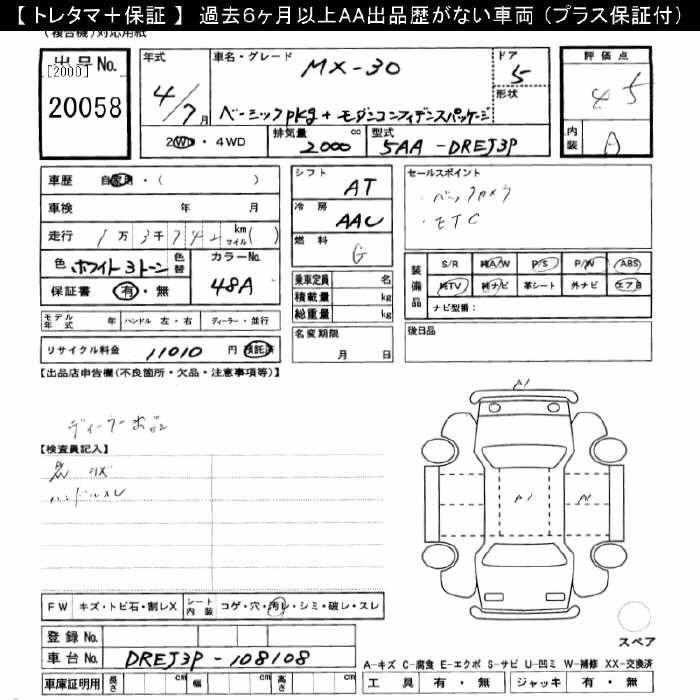 【 トレタマ＋保証 】 過去6ヶ月以上AA出品歴がない車両 （プラス保証付）
(複合機)対応用紙
出品No.
[2000]
20058
年式
4/7月
車名・グレード
MX-30
ベーシックpkg + モダンコンフィデンスパッケージ
ドア
5
形状
評価点
4.5
内装
A
2WD・4WD
排気量
2000
cc
型式
5AA-DREJ3P
車歴 自家用・( )
車検 年 月
走行 1万3千742 km マイル( )
色 ホワイト3トーン
色替
カラーNo.
48A
保証書 有・無
シフト
AT
冷房
AAC
燃料
G
セールスポイント
・バックカメラ
・ETC
装備品
S/R 純A/W P/S P/W ABS
純TV 純ナビ 革シート 外ナビ エアB
ナビ型番：
乗車定員 名
積載量 kg
総重量 kg
モデル年式 年 ハンドル 左・右 ディーラー・並行
リサイクル料金 11010 円 預託済
名変期限
月 日
後日品
【出品店申告欄(不良箇所・欠品・注意事項等)】
【検査員記入】
ハンドルスレ
A1
A1
A1
FW キズ・トビ石・割レX
シート内装 コゲ・穴・汚レ・シミ・破レ・スレ
スペア
登録No.
車台No. DREJ3P-108108
A-キズ C-腐食 E-エクボ S-サビ U-凹ミ W-補修 XX-交換済
車庫証明用 長さ cm 幅 cm 高さ cm
工具 有・無 ジャッキ 有・無